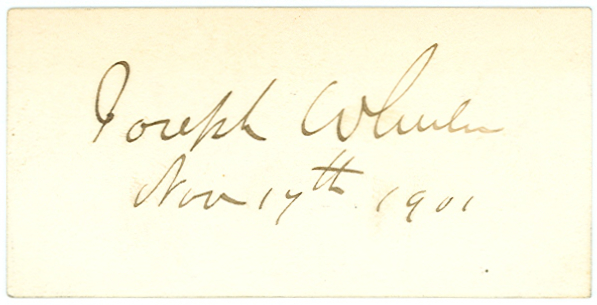 Joseph Wheeler
Nov 17th 1901